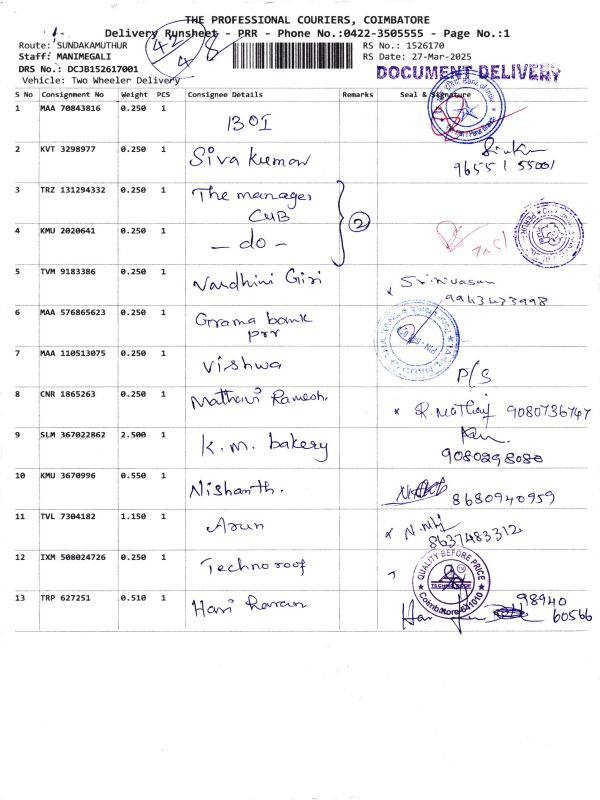 THE PROFESSIONAL COURIERS, COIMBATORE
Delivery Runsheet - PRR - Phone No.:0422-3505555 - Page No.:1
Route: SUNDAKAMUTHUR
42
48
RS No.: 1526170
Staff: MANIMEGALI
RS Date: 27-Mar-2025
DRS No.: DCJB152617001
DOCUMENT DELIVERY
Vehicle: Two Wheeler Delivery
S No Consignment No Weight PCS Consignee Details Remarks Seal & Signature
1 MAA 70843816 0.250 1 BOI
2 KVT 3298977 0.250 1 Siva Kumar
96551 55001
3 TRZ 131294332 0.250 1 The manager
CUB
2
4 KMU 2020641 0.250 1 - do -
5 TVM 9183386 0.250 1 Vardhini Giri Srinivasan
9943473998
6 MAA 576865623 0.250 1 Grama bank
prr
7 MAA 110513075 0.250 1 Vishwa P/S
8 CNR 1865263 0.250 1 Mathavi Ramesh. R. Mathavi 9080736747
9 SLM 367022862 2.500 1 K.m. bakery
9080298080
10 KMU 3670996 0.550 1 Nishanth. 8680940959
11 TVL 7304182 1.150 1 Arun
8637483312
12 IXM 508024726 0.250 1 Techno roof
QUALITY BEFORE PRICE
Coimbatore-641010
13 TRP 627251 0.510 1 Hari Karan
98940
60566